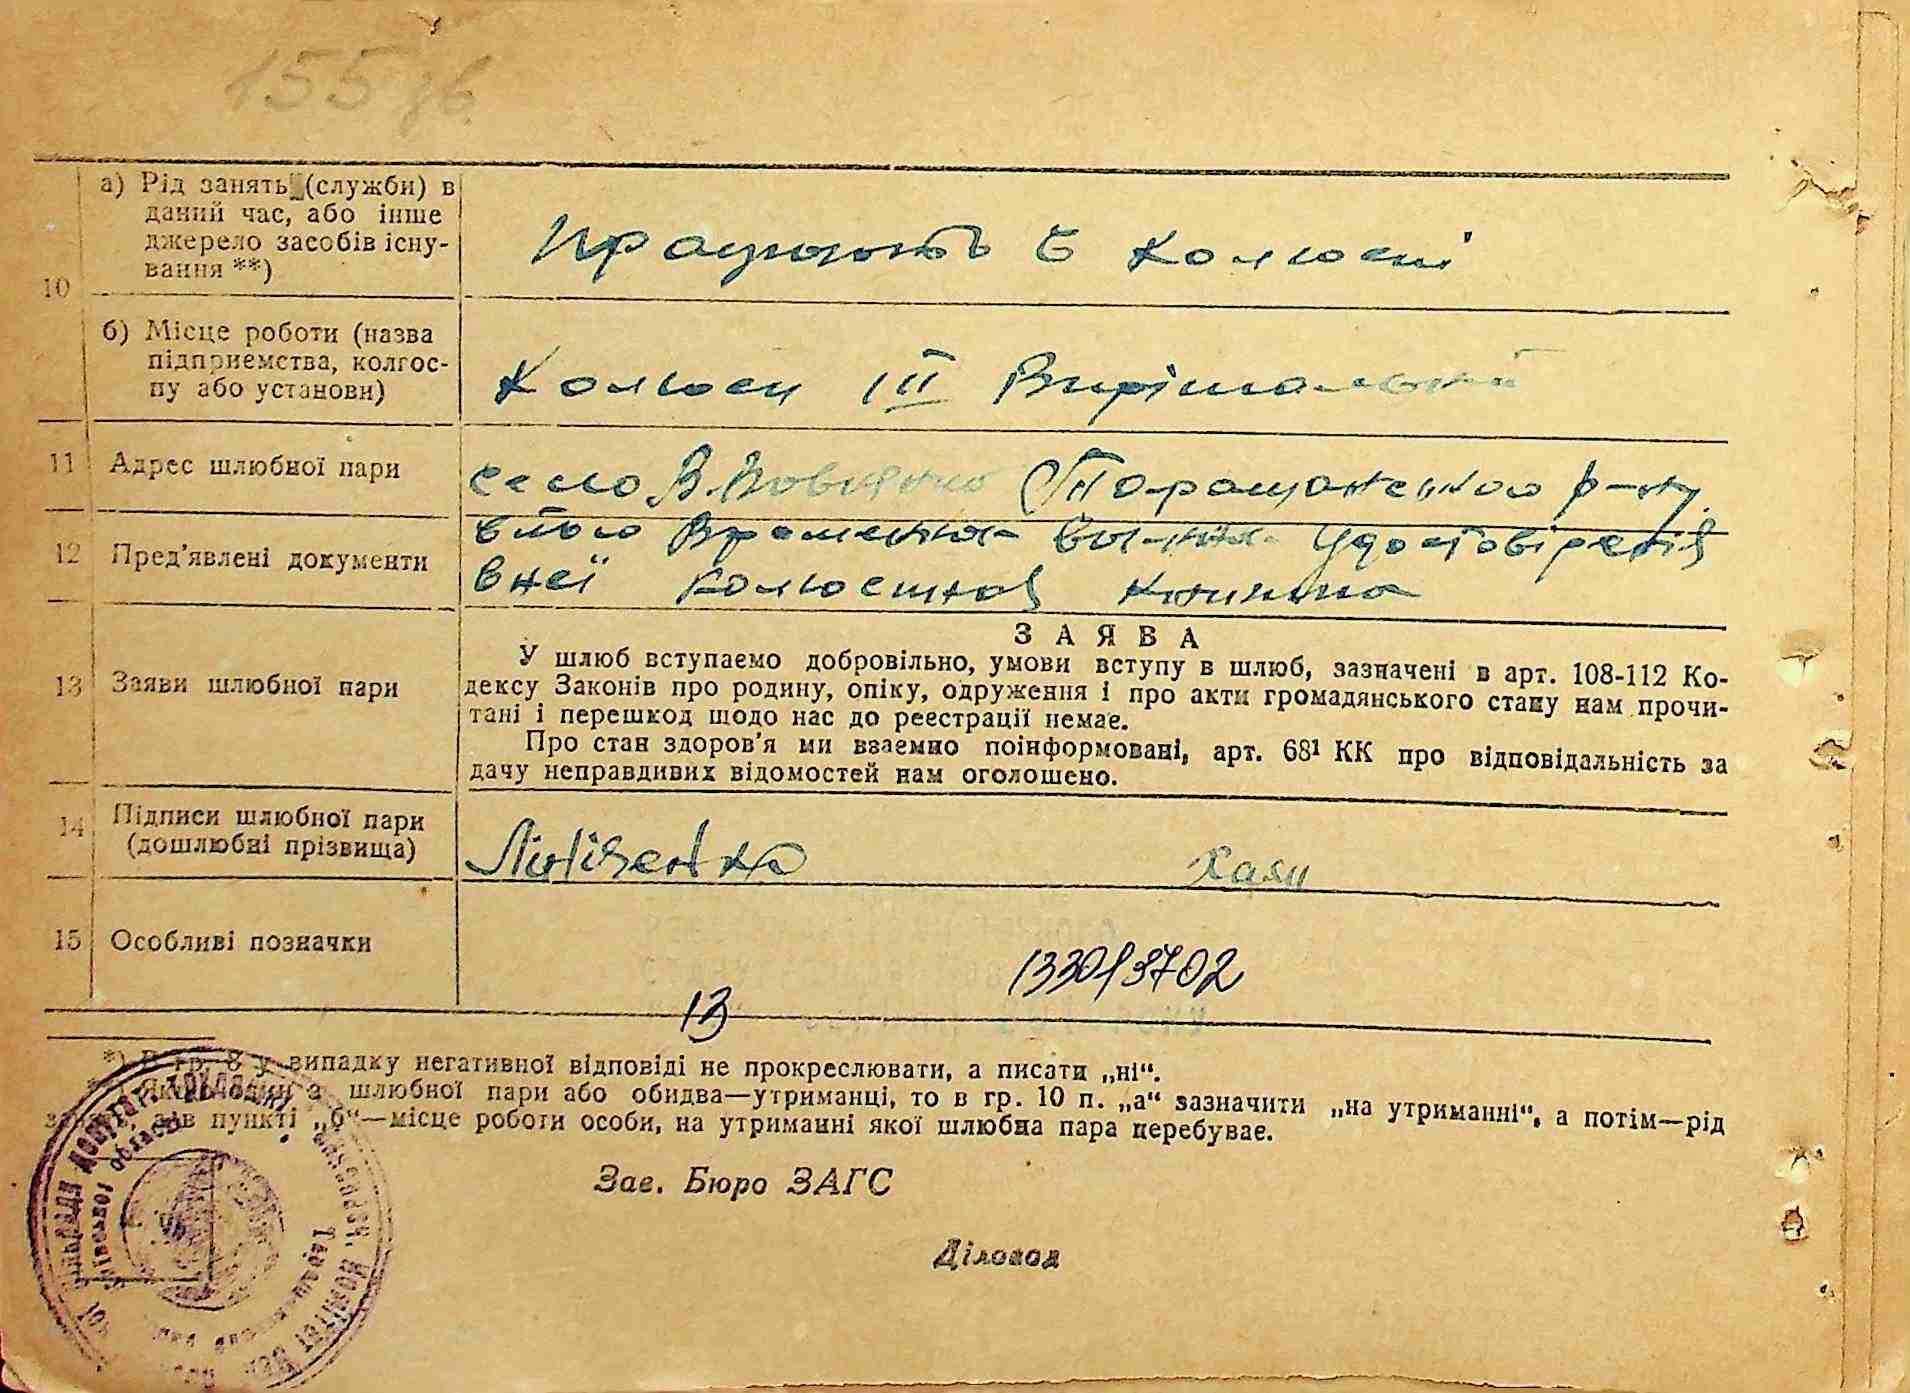 155
а) Рід занять (службы) в
даний час, або інше
джерело засобів існу-
вання **)
10
Працюють в колгоспі
б) Місце роботи (назва
підприемства, колгос-
пу або установи)
Колгосп ІІІ Вирішальний
11 Адрес шлюбної пари
село В. Вовнянка Таращанського р-ну.
12 Пред'явлені документи
в нього Временна удостовіренія
в неї колгоспна книжка
13 Заяви шлюбної пари
ЗАЯВА
У шлюб вступаємо добровільно, умови вступу в шлюб, зазначені в арт. 108-112 Ко-
дексу Законів про родину, опіку, одруження і про акти громадянського стану нам прочи-
тані і перешкод щодо нас до реєстрації немає.
Про стан здоров'я ми взаємно поінформовані, арт. 68¹ КК про відповідальність за
дачу неправдивих відомостей нам оголошено.
14 Підписи шлюбної пари
(дошлюбні прізвища)
Литвиенко
15 Особливі позначки
1330/3702
13
*) В гр. 8 у випадку негативної відповіді не прокреслювати, а писати „ні“.
**) Якщо один з шлюбної пари або обидва—утриманці, то в гр. 10 п. „а“ зазначити „на утриманні“, а потім—рід
в пункті „б“—місце роботи особи, на утриманні якої шлюбна пара перебуває.
Зав. Бюро ЗАГС
Діловод